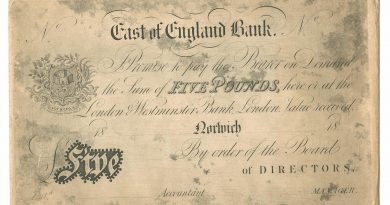 No. East of England Bank. No.
I Promise to pay the Bearer on Demand
the Sum of FIVE POUNDS, here or at the
London & Westminster Bank, London, Value received.
18 Norwich 18
By order of the Board
of DIRECTORS.
£ Five
Accountant MANAGER.